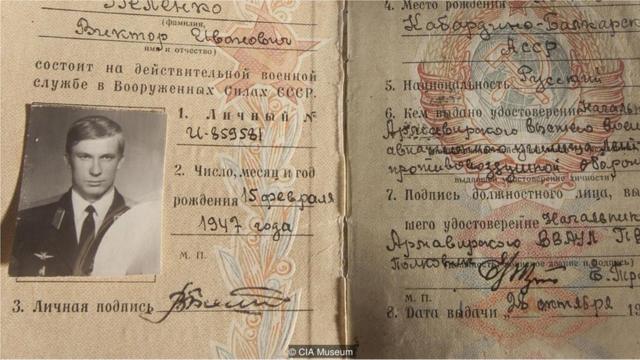 Виктор Иванович
имя и отчество)
состоит на действительной военной
службе в Вооруженных Силах СССР.
1. Личный №
И-859581
2. Число, месяц и год
рождения 15 февраля
1947 года
М. П.
3. Личная подпись
4. Место рождения
Кабардино-Балкарс
АССР
5. Национальность Русский
6. Кем выдано удостоверение Начальн
Армавирского высшего вое
авиа училища лет
противовоздушной оборон
7. Подпись должностного лица, вы
шего удостоверение Начальник
Армавирского ВВАУЛ ПВ
Полковник
М. П.
8. Дата выдачи „26 октября 19
© CIA Museum